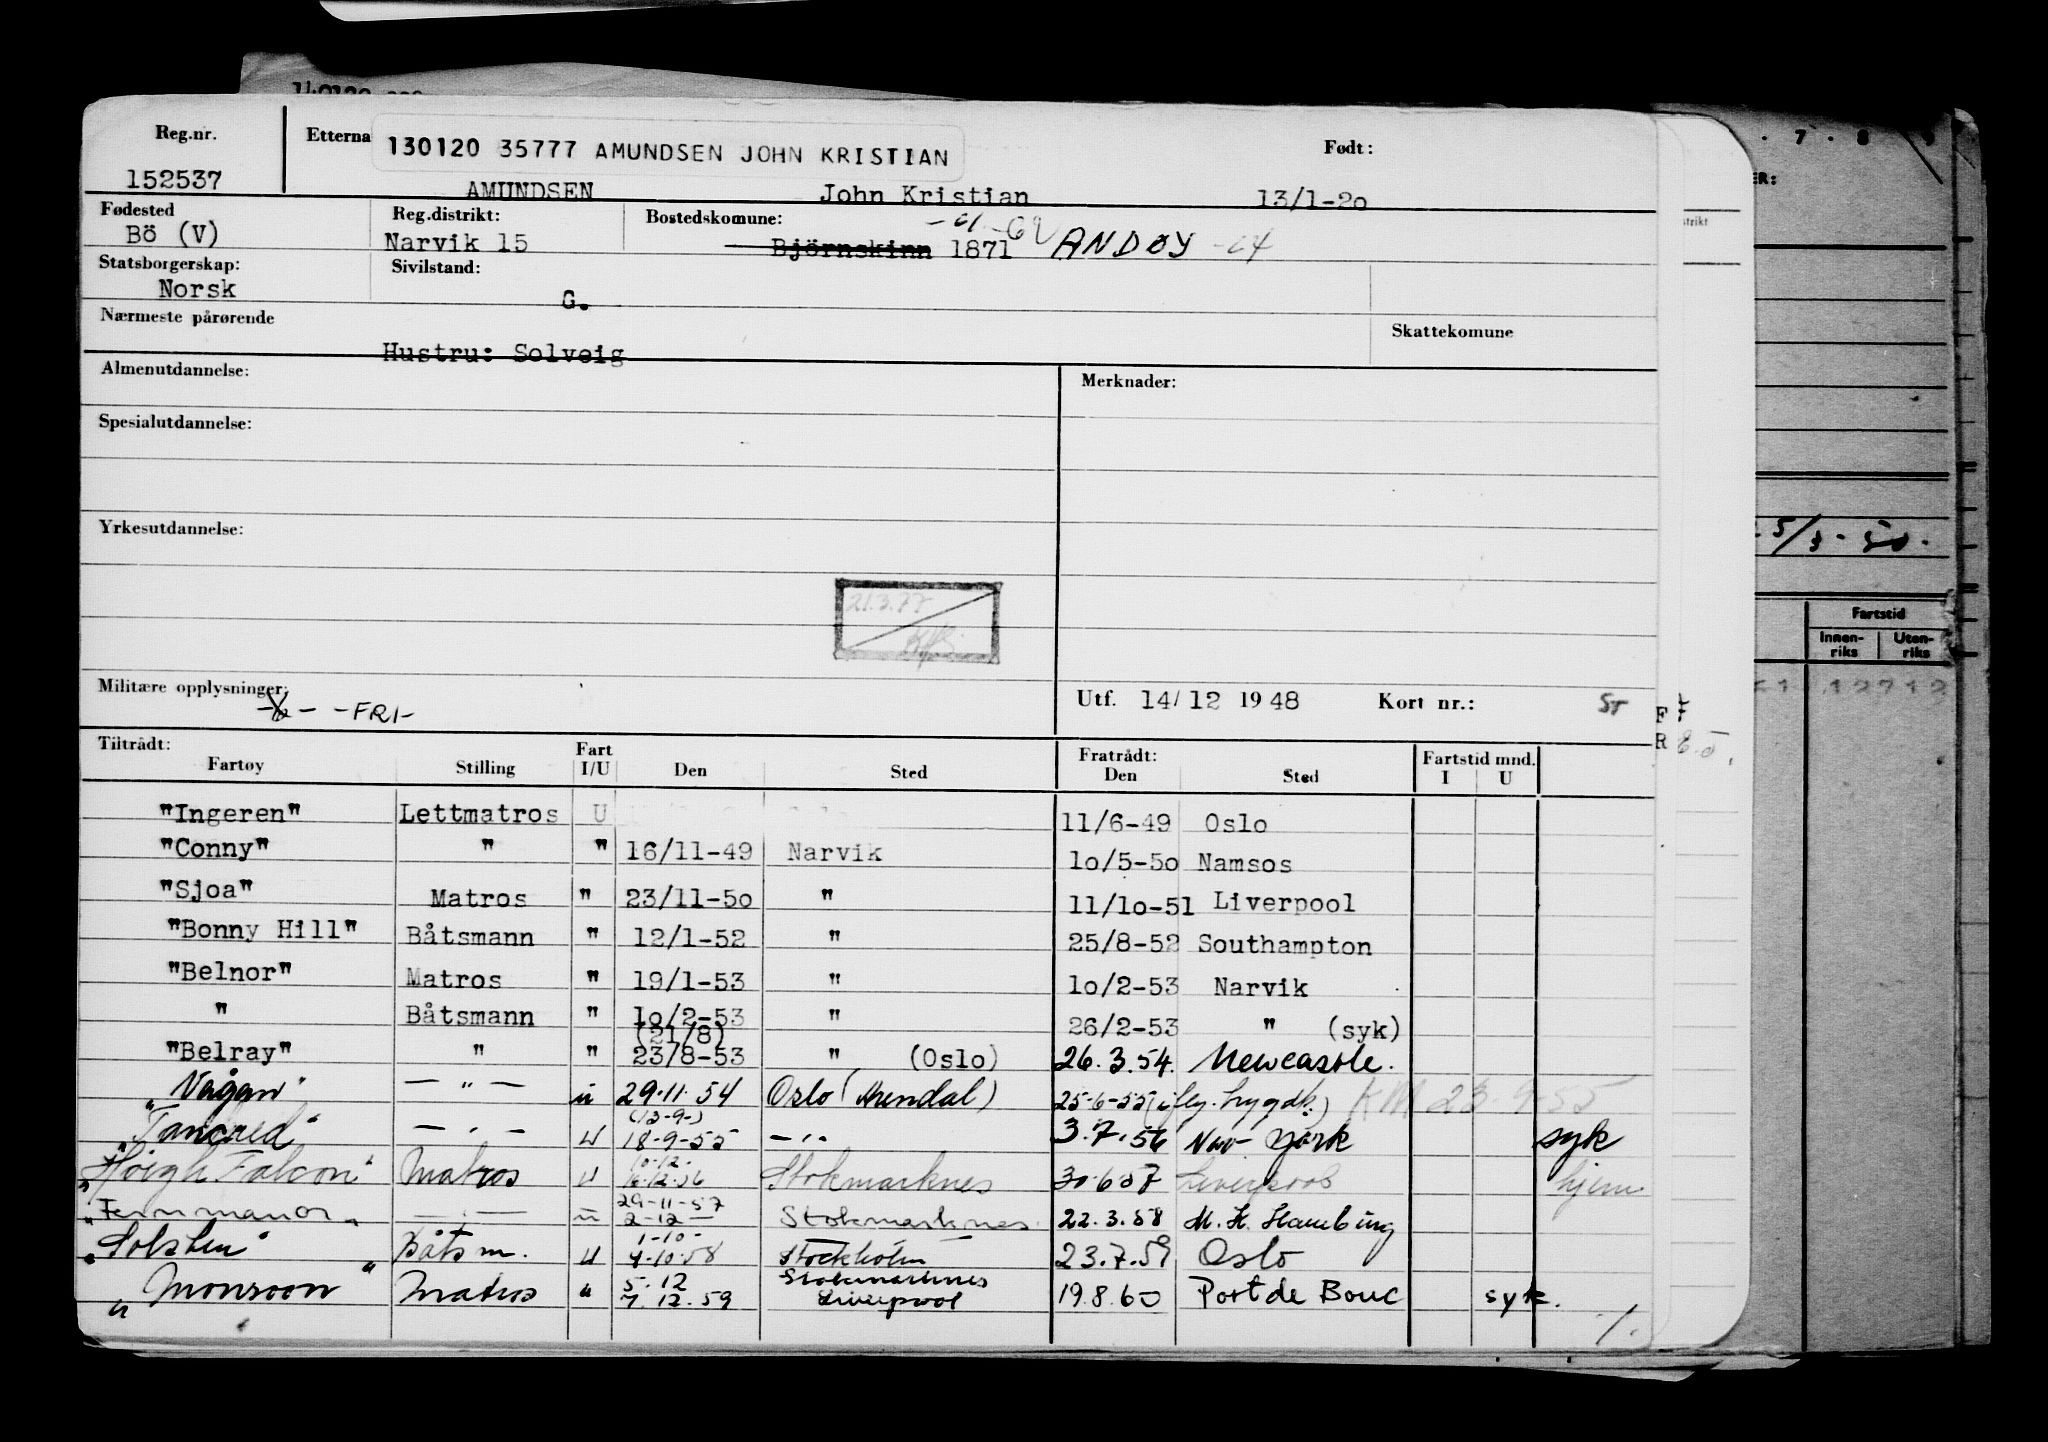 Reg.nr.
152537
Etterna
130120 35777 AMUNDSEN JOHN KRISTIAN
Født:
AMUNDSEN John Kristian 13/1-20
Fødested
Bö (V)
Reg.distrikt:
Narvik 15
Bostedskomune:
-61-62
Björnskinn 1871 ANDØY
Statsborgerskap:
Norsk
Sivilstand:
G.
Nærmeste pårørende
Hustru: Solveig
Skattekomune
Almenutdannelse:
Merknader:
Spesialutdannelse:
Yrkesutdannelse:
21.3.77
Militære opplysninger:
-FRI-
Utf. 14/12 1948 Kort nr.:
Tiltrådt:
Fartøy Stilling Fart I/U Den Sted Fratrådt: Den Sted Fartstid mnd. I U
"Ingeren" Lettmatros U 11/6-49 Oslo
"Conny" " " 16/11-49 Narvik 10/5-50 Namsos
"Sjoa" Matros " 23/11-50 " 11/10-51 Liverpool
"Bonny Hill" Båtsmann " 12/1-52 " 25/8-52 Southampton
"Belnor" Matros " 19/1-53 " 10/2-53 Narvik
" Båtsmann " 10/2-53 " 26/2-53 " (syk)
(21/8)
"Belray" " " 23/8-53 " (Oslo) 26.3.54. Newcastle.
"Vågan" — " — u 29.11.54 Oslo (Arendal) 25-6-55 KM 23-9-55
(13-9-)
"Tancred" — " — U 18-9-55 — " 3.7.56 New York syk
10.12.
"Höigh Falcon" Matros U 16.12.56 Stokmarknes 30.6.57 Liverpool hjem
29-11-57
"Fernmanor" — " — u 2-12 — Stokmarknes 22.3.58 M. K. Hamburg
1-10-
"Solsten" Båtsm. U 4-10-58 Stockholm 23.7.59 Oslo
5.12 Stokmarknes
"Monsoon" Matros " 7.12.59 Liverpool 19.8.60 Port de Bouc syk.
5/3-50.
Fartstid
Innen-riks Uten-riks